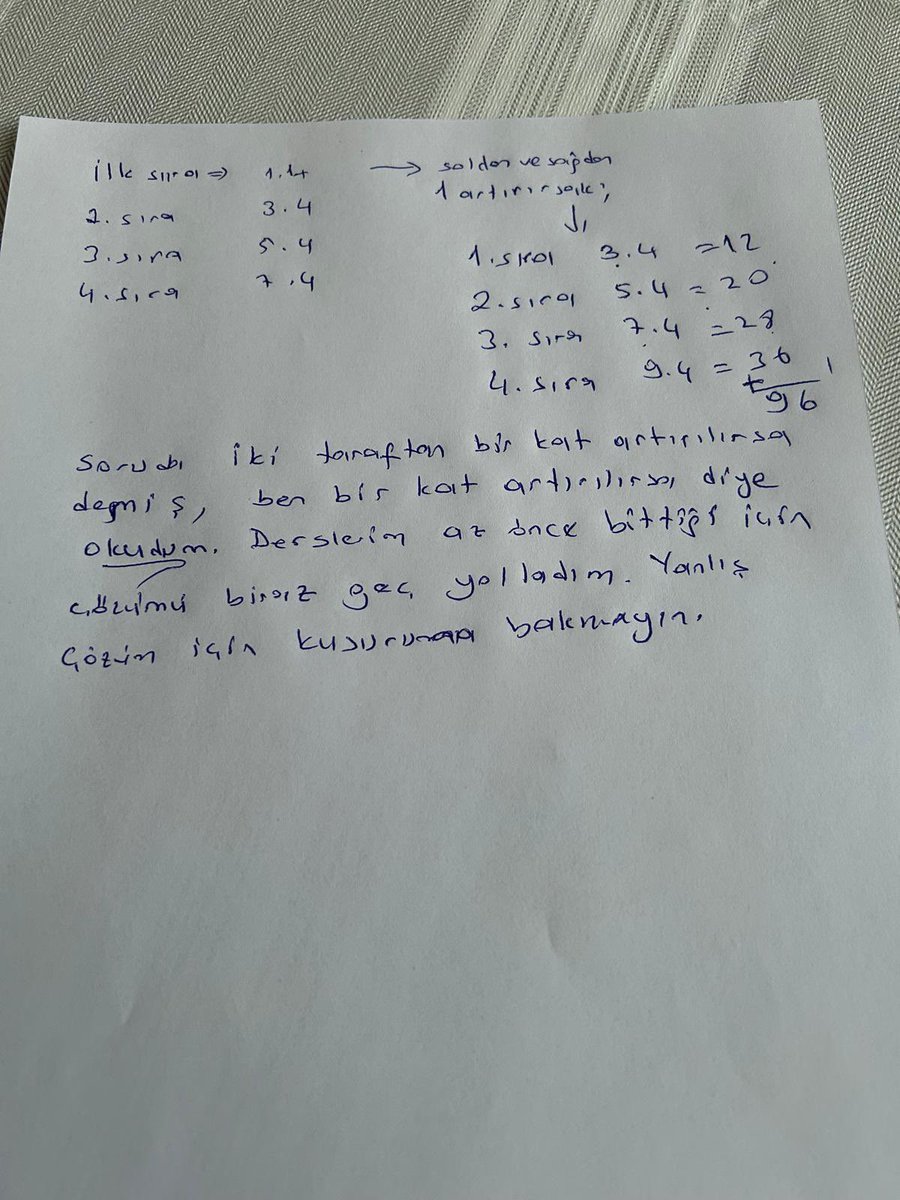 ilk sıra => 1.4
2. sıra 3.4
3. sıra 5.4
4. sıra 7.4
→ soldan ve sağdan
1 artırırsak;
↓
1. sıra 3.4 = 12
2. sıra 5.4 = 20
3. sıra 7.4 = 28
4. sıra 9.4 = 36
+ 96
Soruda iki taraftan bir kat artırılırsa
demiş, ben bir kat artırılırsa diye
okudum. Derslerim az önce bittiği için
çözümü biraz geç yolladım. Yanlış
çözüm için kusuruma bakmayın.